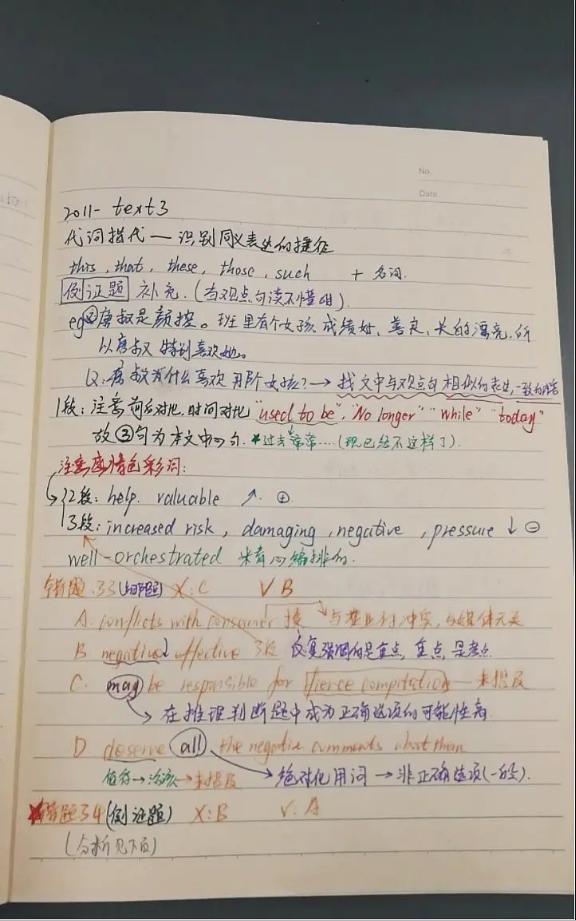 No.
Date.
2011- text3
代词指代 — 识别同义表达的捷径
this, that, these, those, such + 名词.
例证题 补充.(当观点句读不懂时)
eg② 唐叔是颜控。班里有个女孩 成绩好, 善良, 长的漂亮, 所
以唐叔 特别喜欢她。
Q: 唐叔为什么喜欢那个女孩? → 找文中与观点句相似的表达, 一致的内容
1段: 注意前后对比, 时间对比 "used to be", "No longer" "while" "today"
故③句为本文中心句. *过去常常…(现已经不这样了).
注意感情色彩词:
2段: help. valuable ↗ ⊕
3段: increased risk, damaging, negative, pressure ↓ ⊖
well-orchestrated 精心编排的.
错题.33(细节题) X: C V B
A. conflicts with consumer 接 → 与 冲突, 与媒体无关
B negative effective 3段 反复强调的是重点, 重点是考点
C. may be responsible for fierce competition — 未提及
→ 在推理判断题中成为正确选项的可能性高
D deserve all the negative comments about them
值得 → 应该 → 未提及 → 绝对化用词 → 非正确选项(一般).
错题34(例证题) X: B V: A
(分析见下页)